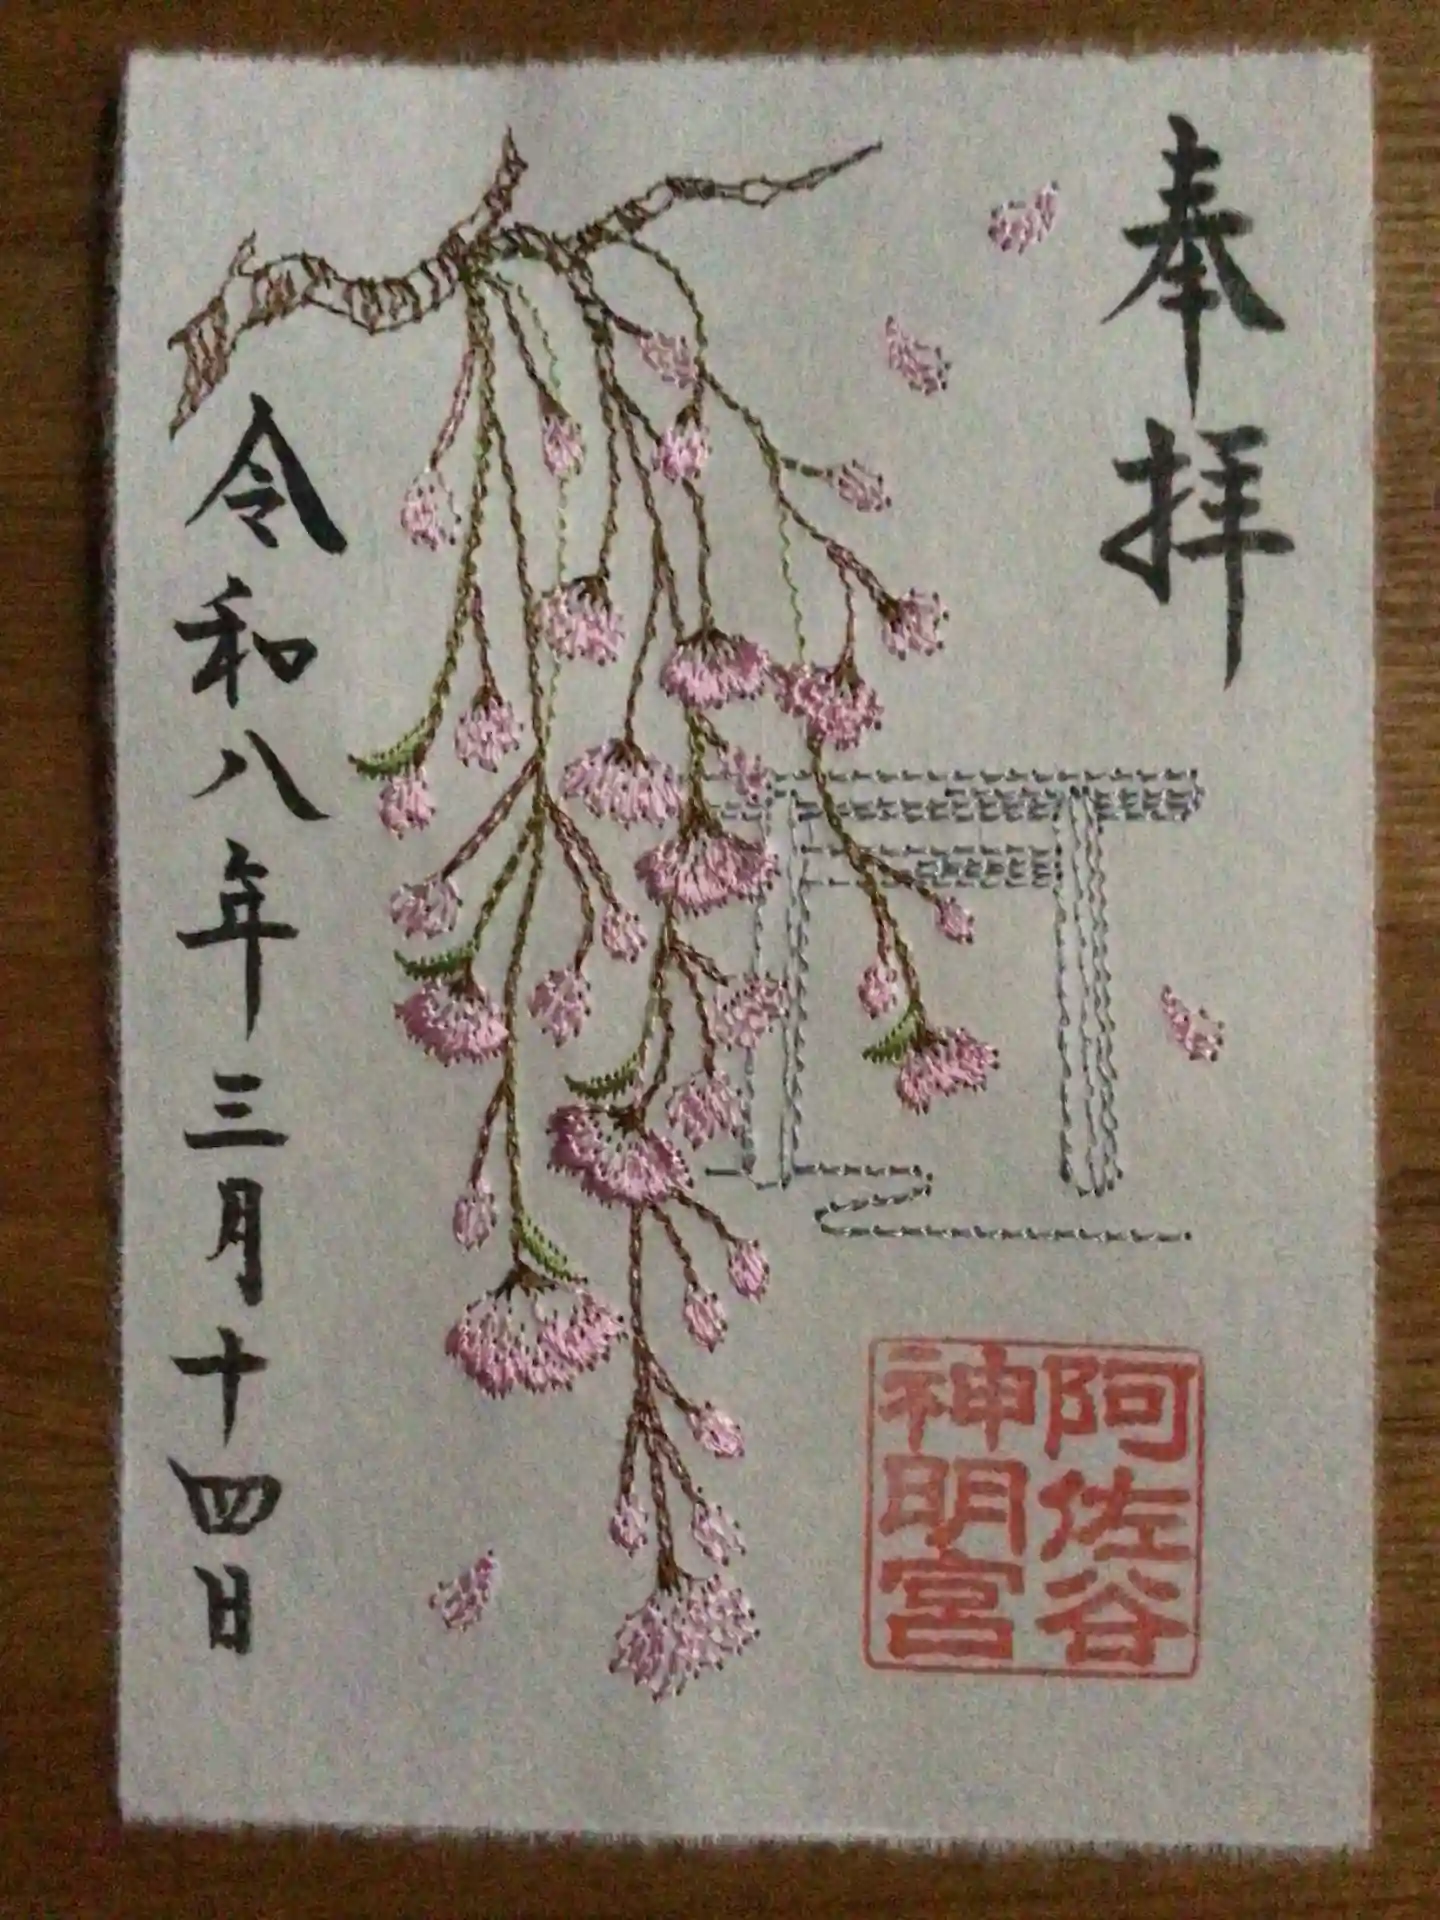 奉拝
阿佐谷
神明宮
令和八年三月十四日